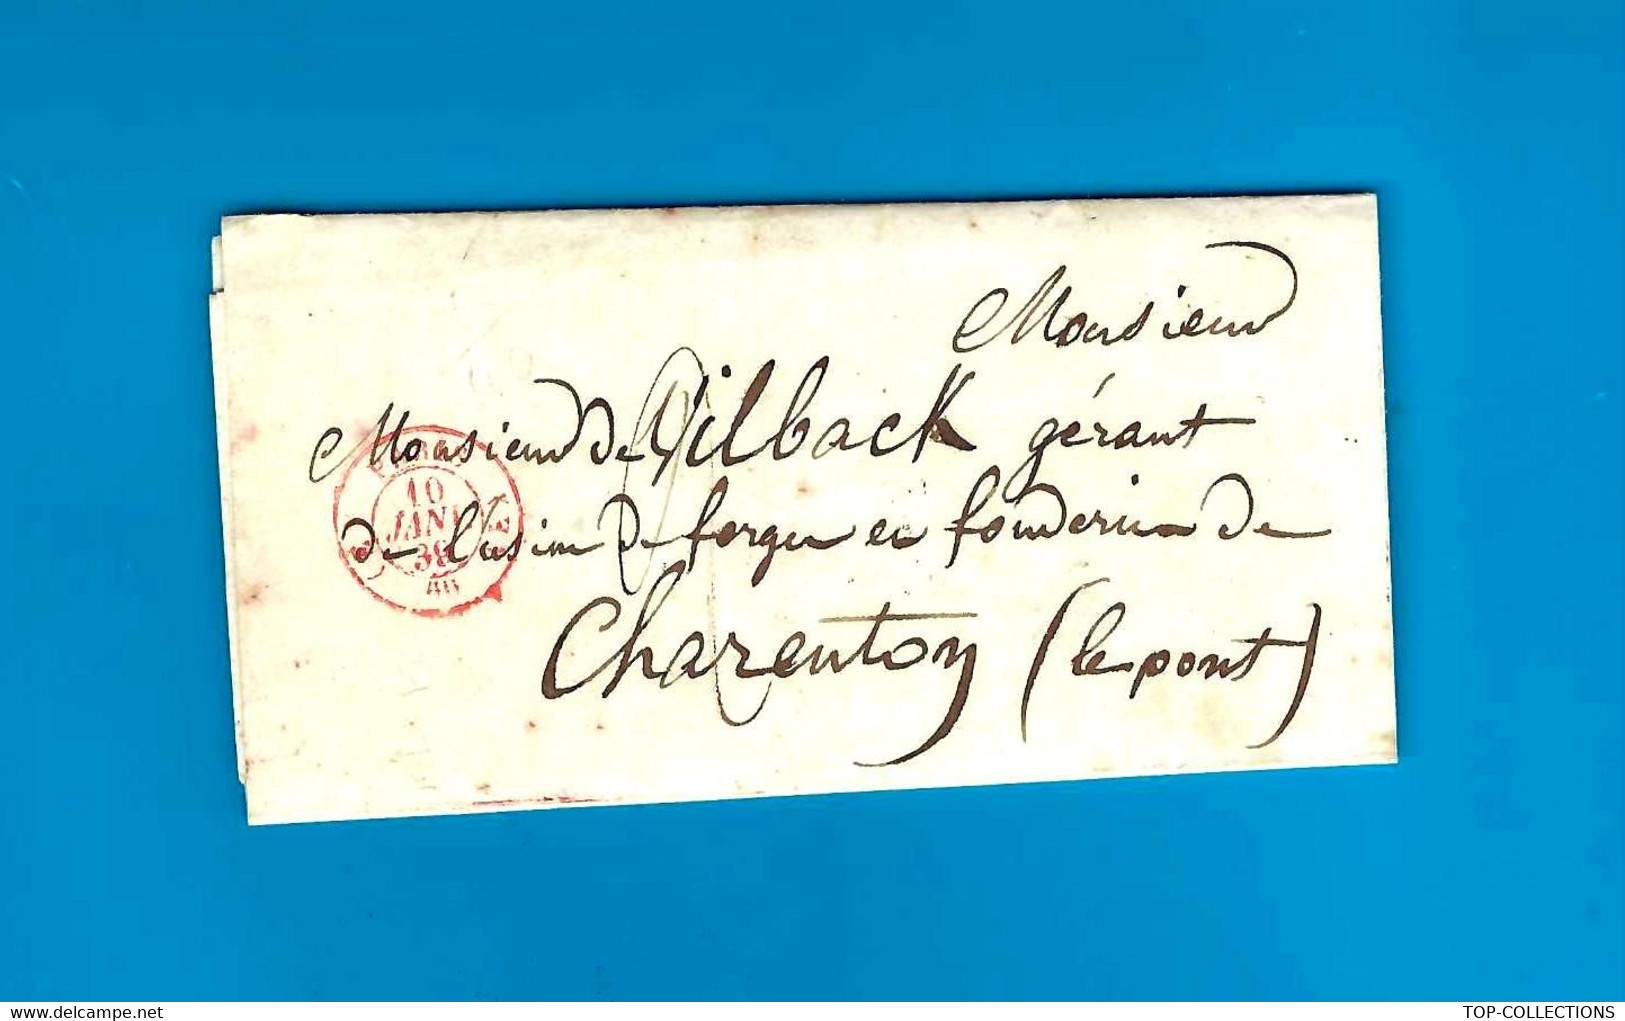 Monsieur
Monsieur De Vilback gérant
de l'usine De forges et fonderies De
Charenton (le pont)
PARIS
10
JANV
38
TOP-COLLECTIONS
delcampe.net